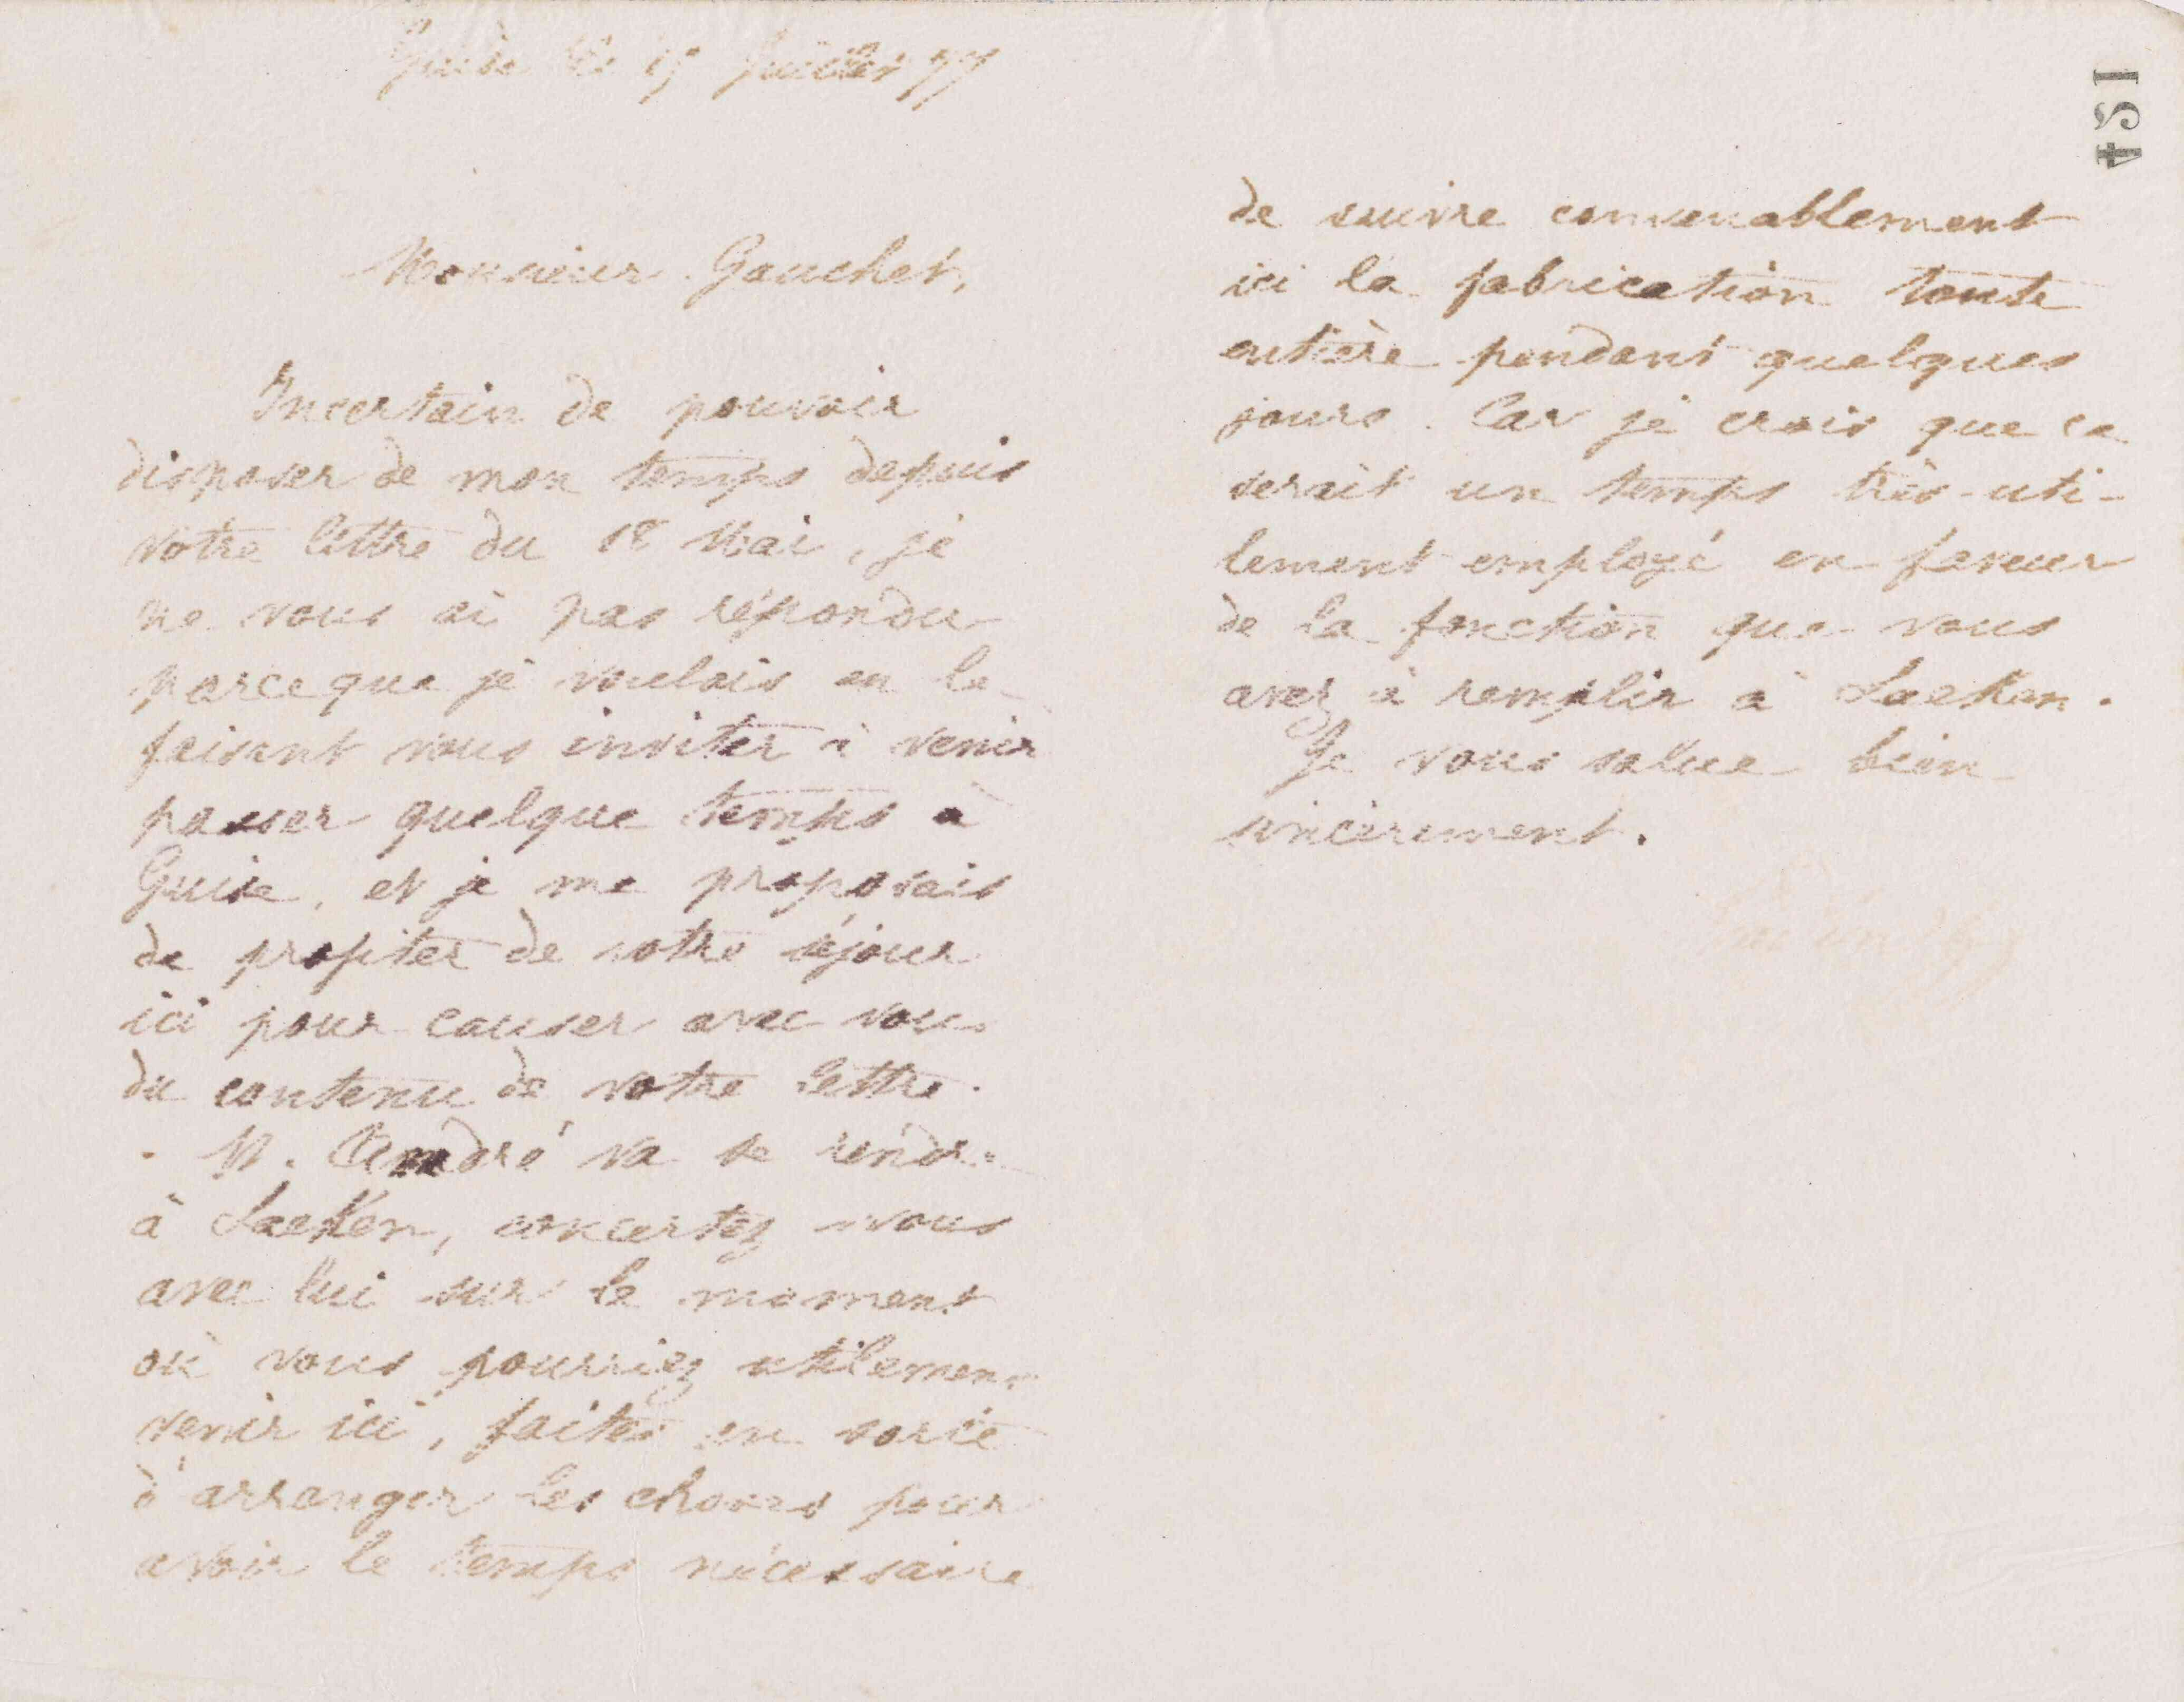 Guise le 17 Juillet 77
Monsieur Gauchet,
Incertain de pouvoir
disposer de mon temps depuis
votre lettre du 18 Mai, je
ne vous ai pas répondu
parceque je voulais en le
faisant vous inviter à venir
passer quelque temps à
Guise, et je me proposais
de profiter de votre séjour
ici pour causer avec vous
du contenu de votre lettre.
M. André va se rendre
à Laeken, concertez vous
avec lui sur le moment
où vous pourriez utilement
venir ici, faites en sorte
d'arranger les choses pour
avoir le temps nécessaire
154
de suivre convenablement
ici la fabrication toute
entière pendant quelques
jours. Car je crois que ce
serait un temps très-uti-
lement employé en faveur
de la fonction que vous
avez à remplir à Laeken.
Je vous salue bien
sincèrement.